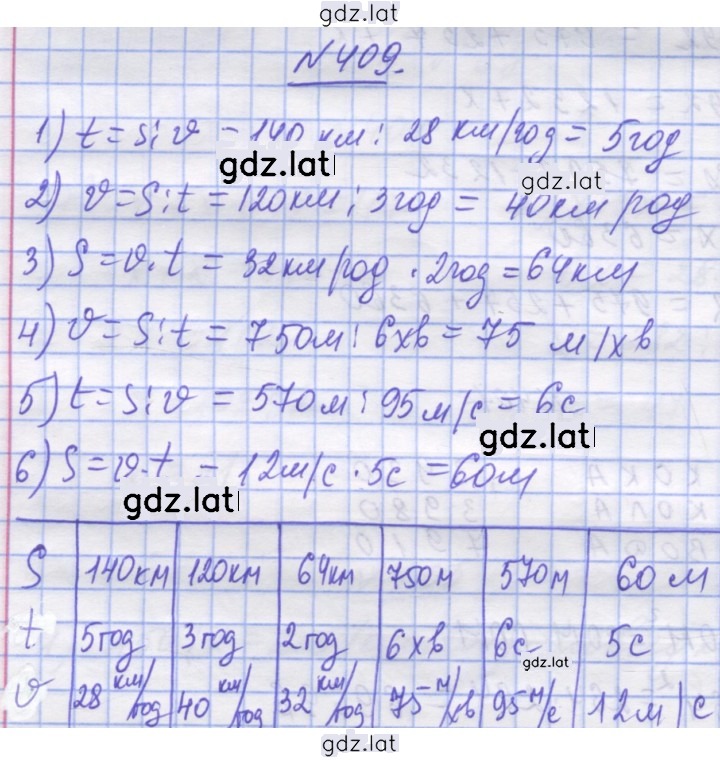 gdz.lat
№409.
1) t = S : v = 140 км : 28 км/год = 5 год
gdz.lat
gdz.lat
2) v = S : t = 120 км : 3 год = 40 км/год
3) S = v · t = 32 км/год · 2 год = 64 км
4) v = S : t = 750 м : 6 хв = 75 м/хв
5) t = S : v = 570 м : 95 м/с = 6 с
gdz.lat
6) S = v · t = 12 м/с · 5 с = 60 м
gdz.lat
S 140 км 120 км 64 км 750 м 570 м 60 м
t 5 год 3 год 2 год 6 хв 6 с 5 с
gdz.lat
v 28 км/год 40 км/год 32 км/год 75 м/хв 95 м/с 12 м/с
gdz.lat